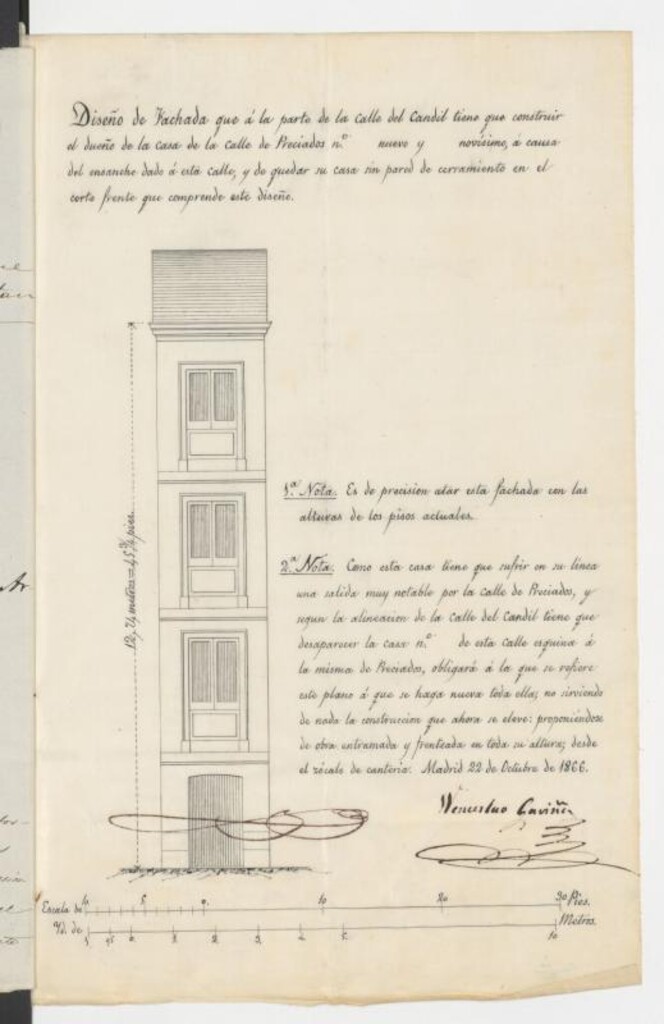 Diseño de Fachada que á la parte de la calle del Candil tiene que construir
el dueño de la casa de la calle de Preciados n.º nueve y novísimo, á causa
del ensanche dado á esta calle, y de quedar su casa sin pared de cerramiento en el
corto frente que comprende este diseño.
12,74 metros = 45 3/4 pies.
1.ª Nota. Es de precision atar esta fachada con las
alturas de los pisos actuales.
2.ª Nota. Como esta casa tiene que sufrir en su linea
una salida muy notable por la calle de Preciados, y
segun la alineacion de la calle del Candil tiene que
desaparecer la casa n.º de esta calle esquina á
la misma de Preciados, obligará á la que se refiere
este plano á que se haga nueva toda ella; no sirviendo
de nada la construccion que ahora se eleve: proponiéndose
de obra entramada y frenteada en toda su altura; desde
el zócalo de cantería. Madrid 22 de Octubre de 1866.
Wenceslao Gaviña
Escala de 5 0 10 20 30 Pies.
Yd. de 1 0 1 2 3 4 5 10 Metros.